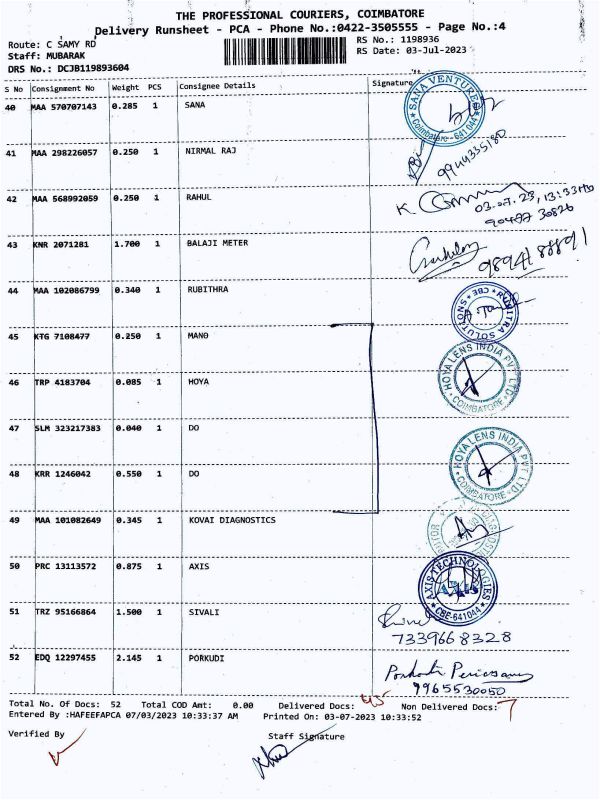 THE PROFESSIONAL COURIERS, COIMBATORE
Delivery Runsheet - PCA - Phone No.:0422-3505555 - Page No.:4
Route: C SAMY RD
RS No.: 1198936
Staff: MUBARAK
RS Date: 03-Jul-2023
DRS No.: DCJB119893604
S No Consignment No Weight PCS Consignee Details Signature
40 MAA 570707143 0.285 1 SANA
SANA VENTURES Coimbatore - 641 044
41 MAA 298226057 0.250 1 NIRMAL RAJ
9944335180
42 MAA 568992059 0.250 1 RAHUL
K
03.07.23, 13:33
90477 30826
43 KNR 2071281 1.700 1 BALAJI METER
44 MAA 102086799 0.340 1 RUBITHRA
SOLUTIONS CBE
45 KTG 7108477 0.250 1 MANO
HOYA LENS INDIA PVT LTD COIMBATORE
46 TRP 4183704 0.085 1 HOYA
47 SLM 323217383 0.040 1 DO
HOYA LENS INDIA PVT LTD COIMBATORE
48 KRR 1246042 0.550 1 DO
49 MAA 101082649 0.345 1 KOVAI DIAGNOSTICS
50 PRC 13113572 0.875 1 AXIS
AXIS TECHNOLOGIES CBE-641044
51 TRZ 95166864 1.500 1 SIVALI
7339668328
52 EDQ 12297455 2.145 1 PORKUDI
9965530050
Total No. Of Docs: 52 Total COD Amt: 0.00 Delivered Docs: 45 Non Delivered Docs: 7
Entered By :HAFEEFAPCA 07/03/2023 10:33:37 AM Printed On: 03-07-2023 10:33:52
Verified By
Staff Signature